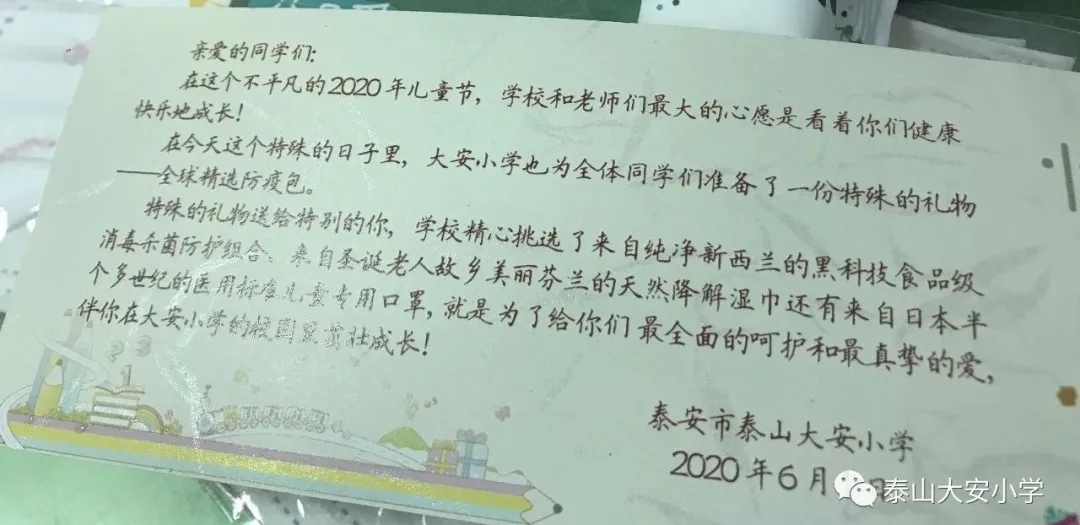 亲爱的同学们:
在这个不平凡的2020年儿童节,学校和老师们最大的心愿是看着你们健康
快乐地成长!
在今天这个特殊的日子里,大安小学也为全体同学们准备了一份特殊的礼物
——全球精选防疫包。
特殊的礼物送给特别的你,学校精心挑选了来自纯净新西兰的黑科技食品级
消毒杀菌防护组合;来自圣诞老人故乡美丽芬兰的天然降解湿巾还有来自日本半
个多世纪的医用标准儿童专用口罩,就是为了给你们最全面的呵护和最真挚的爱,
伴你在大安小学的校园里茁壮成长!
泰安市泰山大安小学
2020年6月
泰山大安小学